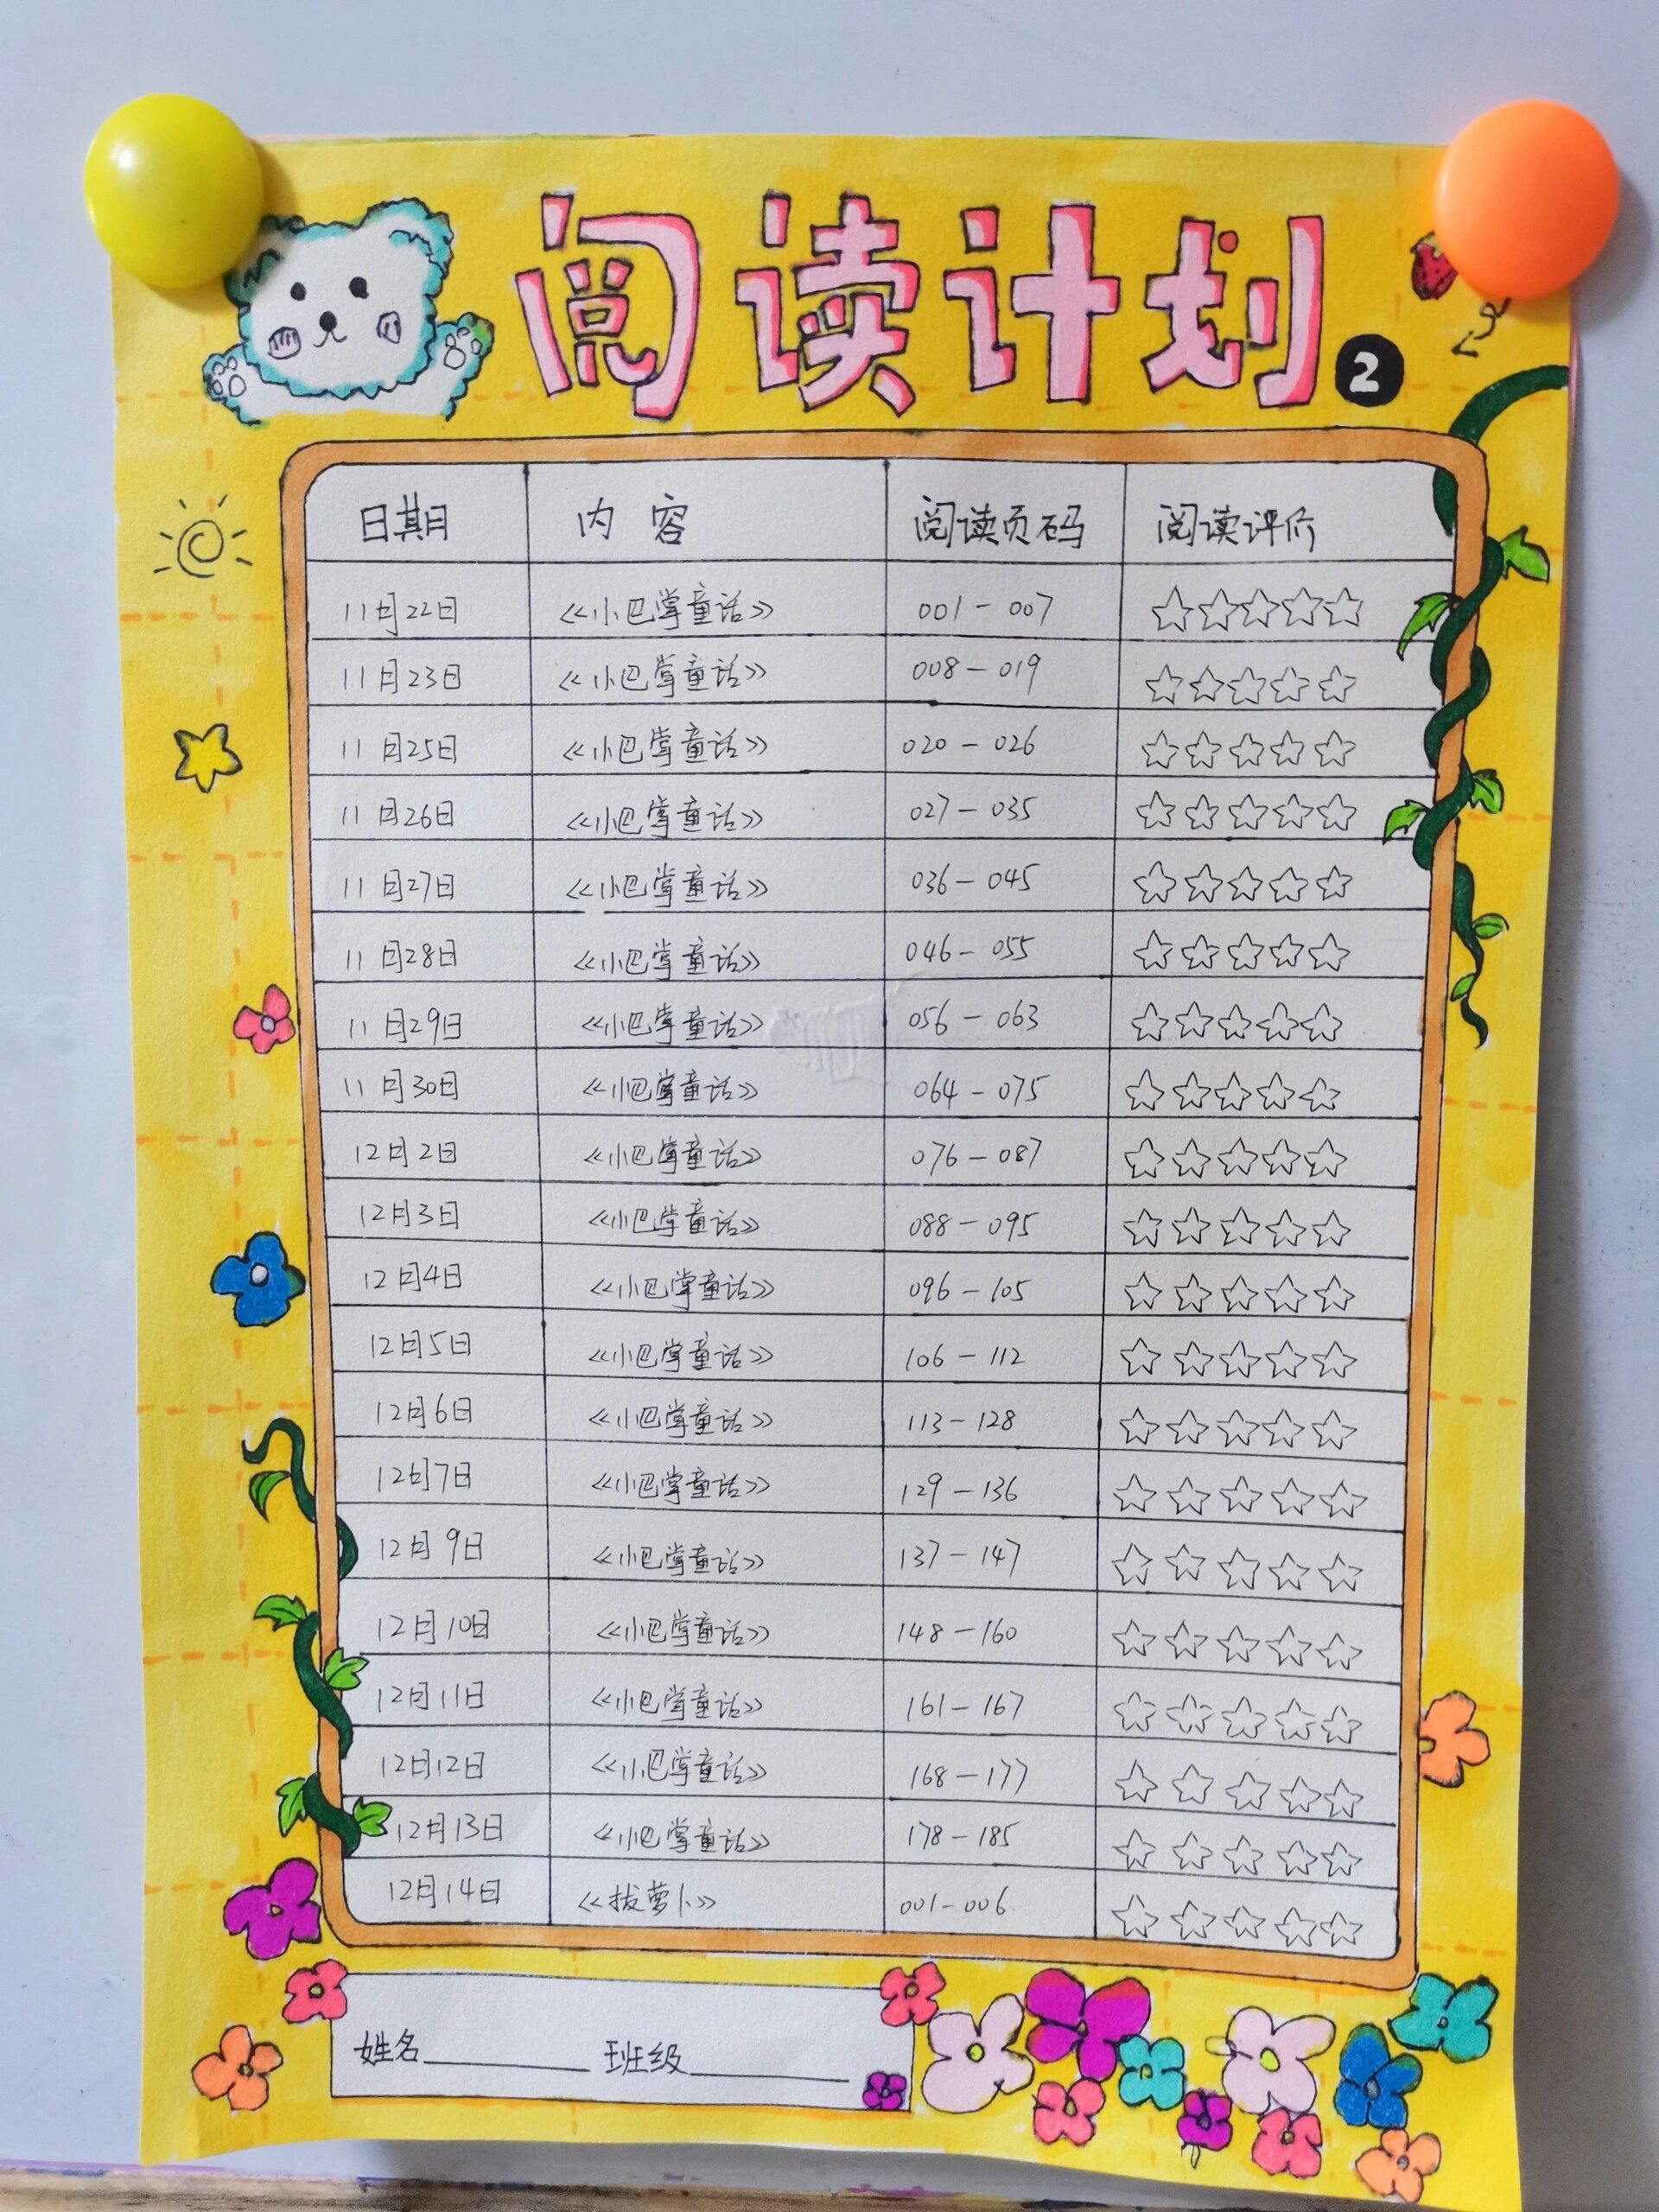 阅读计划 2
日期 内容 阅读页码 阅读评价
11月22日 《小巴掌童话》 001-007 ☆☆☆☆☆
11月23日 《小巴掌童话》 008-019 ☆☆☆☆☆
11月25日 《小巴掌童话》 020-026 ☆☆☆☆☆
11月26日 《小巴掌童话》 027-035 ☆☆☆☆☆
11月27日 《小巴掌童话》 036-045 ☆☆☆☆☆
11月28日 《小巴掌童话》 046-055 ☆☆☆☆☆
11月29日 《小巴掌童话》 056-063 ☆☆☆☆☆
11月30日 《小巴掌童话》 064-075 ☆☆☆☆☆
12月2日 《小巴掌童话》 076-087 ☆☆☆☆☆
12月3日 《小巴掌童话》 088-095 ☆☆☆☆☆
12月4日 《小巴掌童话》 096-105 ☆☆☆☆☆
12月5日 《小巴掌童话》 106-112 ☆☆☆☆☆
12月6日 《小巴掌童话》 113-128 ☆☆☆☆☆
12月7日 《小巴掌童话》 129-136 ☆☆☆☆☆
12月9日 《小巴掌童话》 137-147 ☆☆☆☆☆
12月10日 《小巴掌童话》 148-160 ☆☆☆☆☆
12月11日 《小巴掌童话》 161-167 ☆☆☆☆☆
12月12日 《小巴掌童话》 168-177 ☆☆☆☆☆
12月13日 《小巴掌童话》 178-185 ☆☆☆☆☆
12月14日 《拔萝卜》 001-006 ☆☆☆☆☆
姓名________ 班级________